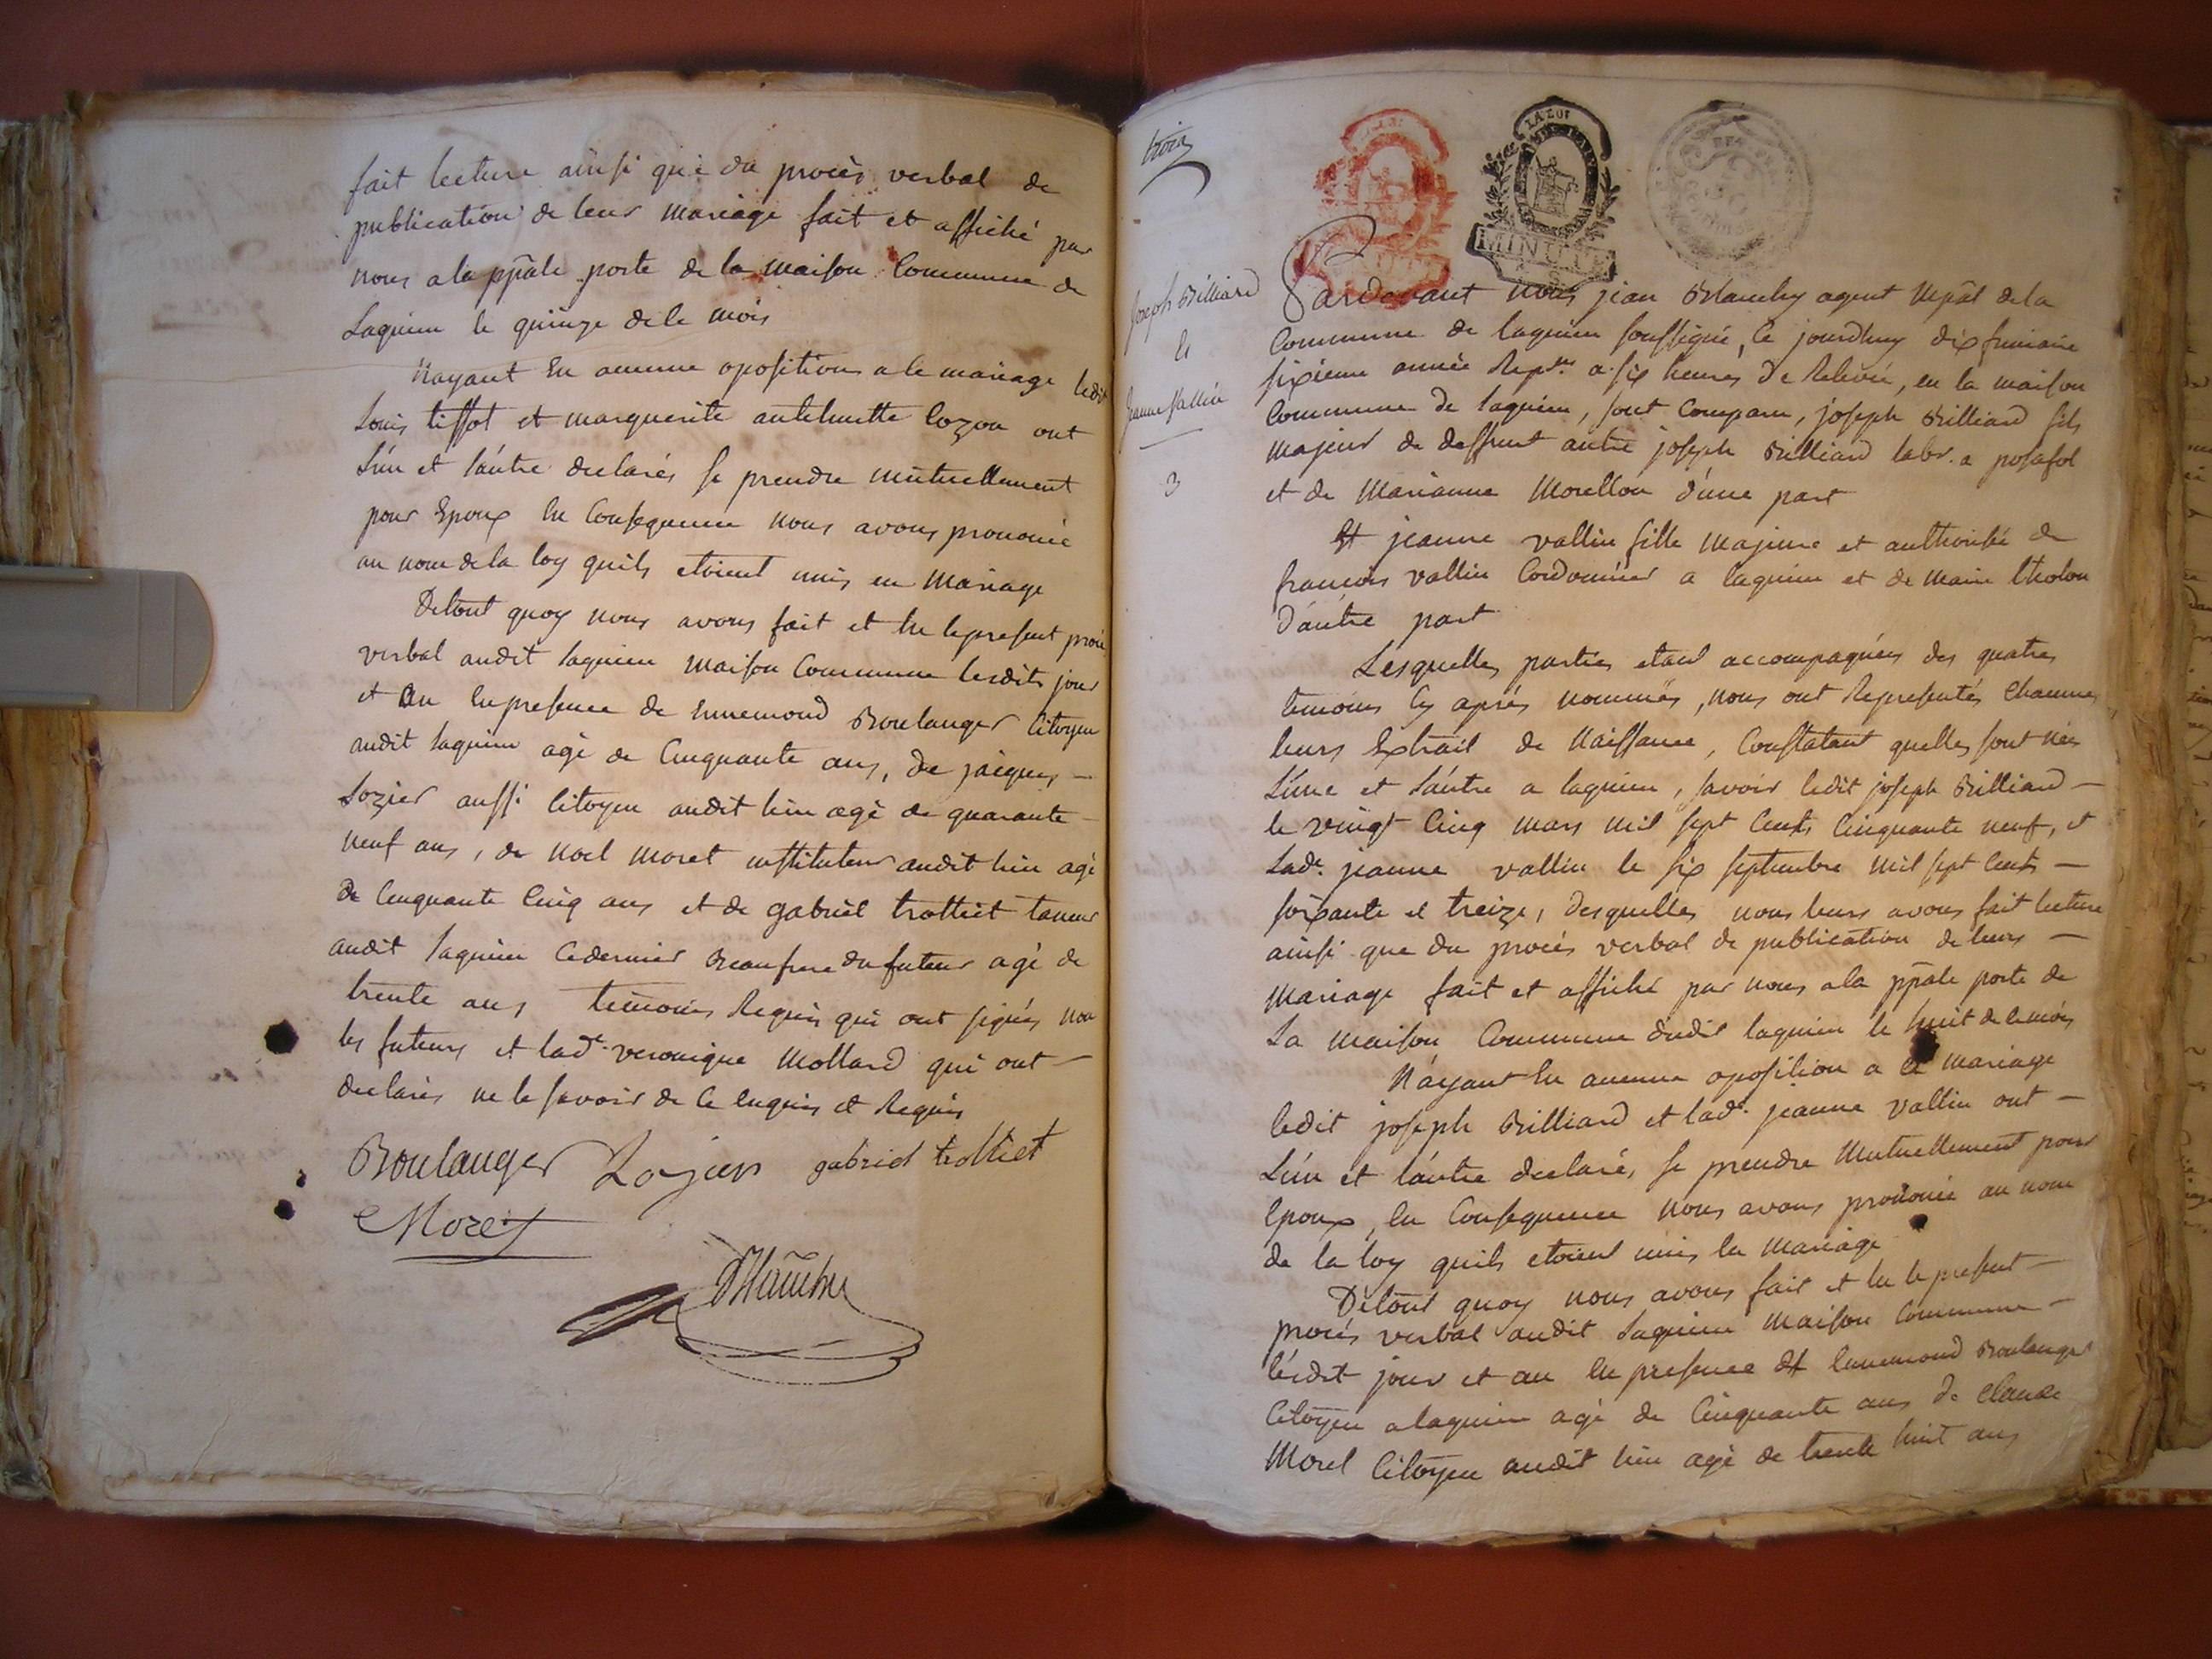 fait lecture ainsi que du procès verbal de
publication de leur mariage fait et affiché par
nous a la pp̃ale porte de la maison Commune de
Lagnieu le quinze de ce mois
Nayant Eu aucune oposition a ce mariage ledit
Louis tissot et marguerite antelmette lozon ont
L'un et l'autre declarés se prendre mutuellement
pour Epoux En Consequence nous avons prononcé
au nom de la loy quils etoient unis en mariage
De tout quoy nous avons fait et lu le present procès
verbal audit Lagnieu maison Commune lesdits jour
et an En presence de Ennemond Boulanger Citoyen
audit Lagnieu agé de Cinquante ans, de jacques
Lozier aussi Citoyen audit lieu agé de quarante
neuf ans, de Noel Moret instituteur audit lieu agé
de Cinquante Cinq ans et de gabriel trottet taneur
audit Lagnieu Ce dernier Beaufrere du futeur agé de
trente ans temoins Requis qui ont signés non
les futeurs et lad.e veronique Mollard qui ont
declarés ne le savoir de Ce Enquis et Requis
Boulanger Lozier gabriel trottet
Moret
Blanchy
trois
Joseph Billiard
Et
Jeanne Vallin
3
LA LOI
MINUTE
Pardevant nous jean Blanchy agent M̃pal de la
Commune de Lagnieu soussigné, Ce jourdhuy dix frimaire
sixieme année Rep.ne a six heures de Relevée, en la maison
Commune de Lagnieu, sont Comparu, joseph Billiard fils
majeur de deffunt autre joseph Billiard labr. a posafol
et de Marianne Morellon d'une part
Et jeanne vallin fille majeure et authorisée de
francois vallin Cordonnier a lagnieu et de marie tholon
D'autre part
Lesquelles parties etant accompagnées des quatres
temoins Cy aprés nommés, nous ont Representés Chacunes
leurs Extrait de Naissance, Constatant quelles sont nées
L'une et l'autre a lagnieu, savoir ledit joseph Billiard
le vingt Cinq mars mil sept Cents Cinquante neuf, et
Lad.e jeanne vallin le six septembre mil sept Cents
soixante et treize, desquelles nous leurs avons fait lecture
ainsi que du procés verbal de publication de leurs
mariage fait et affiché par nous a la pp̃ale porte de
La maison Commune dudit lagnieu le huit de ce mois
Nayant Eu aucune oposition a Ce mariage
ledit joseph Billiard et lad.e jeanne Vallin ont
L'un et l'autre declaré, se prendre Mutuellement pour
Epoux, En Consequence nous avons prononcé au nom
de la loy quils etoient unis En Mariage
De tout quoy nous avons fait et lu le present
procés verbal audit Lagnieu maison Commune
lesdit jour et an En presence de Ennemond Boulanger
Citoyen a lagnieu agé de Cinquante ans de Claude
Morel Citoyen audit lieu agé de trente huit ans